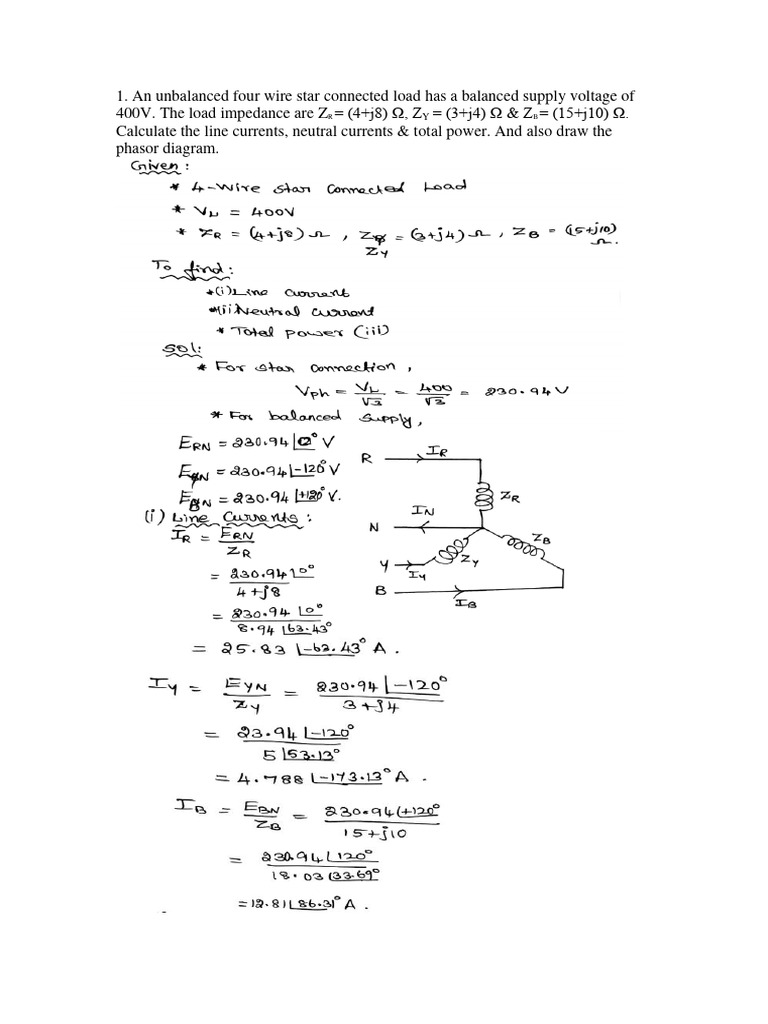 1. An unbalanced four wire star connected load has a balanced supply voltage of
400V. The load impedance are ZR= (4+j8) Ω, ZY = (3+j4) Ω & ZB= (15+j10) Ω.
Calculate the line currents, neutral currents & total power. And also draw the
phasor diagram.
Given :
* 4-Wire star connected Load
* VL = 400V
* ZR = (4+j8) Ω , ZY = (3+j4) Ω , ZB = (15+j10) Ω.
ZY
To find:
*(i) Line current
*(ii) Neutral current
* Total power (iii)
Sol:
* For star connection ,
Vph = VL/√3 = 400/√3 = 230.94 V
* For balanced supply,
ERN = 230.94 ∠0° V
EYN = 230.94 ∠-120° V
EBN = 230.94 ∠+120° V.
(i) Line Currents :
IR = ERN/ZR
= 230.94 ∠0° / 4+j8
= 230.94 ∠0° / 8.94 ∠63.43°
= 25.83 ∠-63.43° A .
R
IR
ZR
IN
N
ZB
Y
IY
ZY
B
IB
IY = EYN/ZY = 230.94 ∠-120° / 3+j4
= 23.94 ∠-120° / 5 ∠53.13°
= 4.788 ∠-173.13° A .
IB = EBN/ZB = 230.94 ∠+120° / 15+j10
= 230.94 ∠120° / 18.03 ∠33.69°
= 12.81 ∠86.31° A .